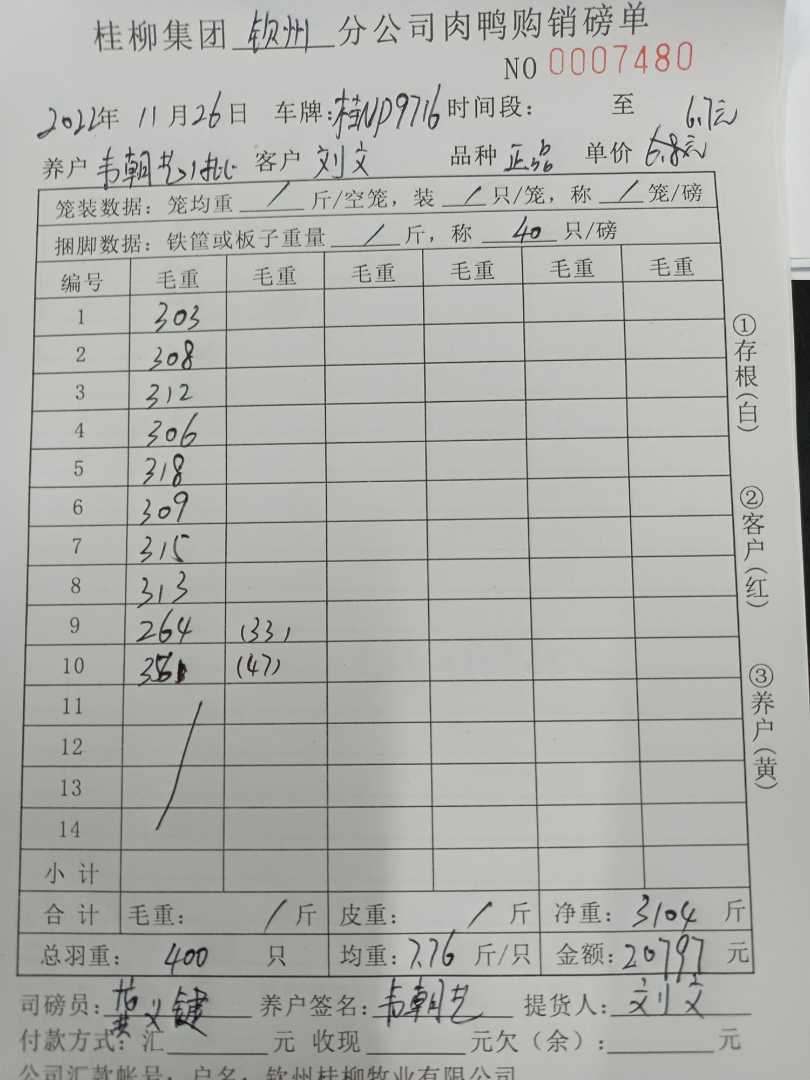 桂柳集团 钦州 分公司肉鸭购销磅单
NO 0007480
2022年 11月26日 车牌:桂NP9716 时间段: 至 6.7元
养户 韦朝艺 客户 刘文 品种 正品 单价 6.8元
笼装数据: 笼均重 / 斤/空笼, 装 / 只/笼, 称 / 笼/磅
捆脚数据: 铁筐或板子重量 / 斤, 称 40 只/磅
编号 毛重 毛重 毛重 毛重 毛重 毛重
1 303
2 308
3 312
4 306
5 318
6 309
7 315
8 313
9 264 (33)
10 356 (47)
11
12
13
14
小计
合计 毛重: / 斤 皮重: / 斤 净重: 3104 斤
总羽重: 400 只 均重: 7.76 斤/只 金额: 20797 元
司磅员: 黄义键 养户签名: 韦朝艺 提货人: 刘文
付款方式: 汇 元 收现 元欠(余): 元
公司汇款帐号: 户名: 钦州桂柳牧业有限公司
①存根(白)
②客户(红)
③养户(黄)